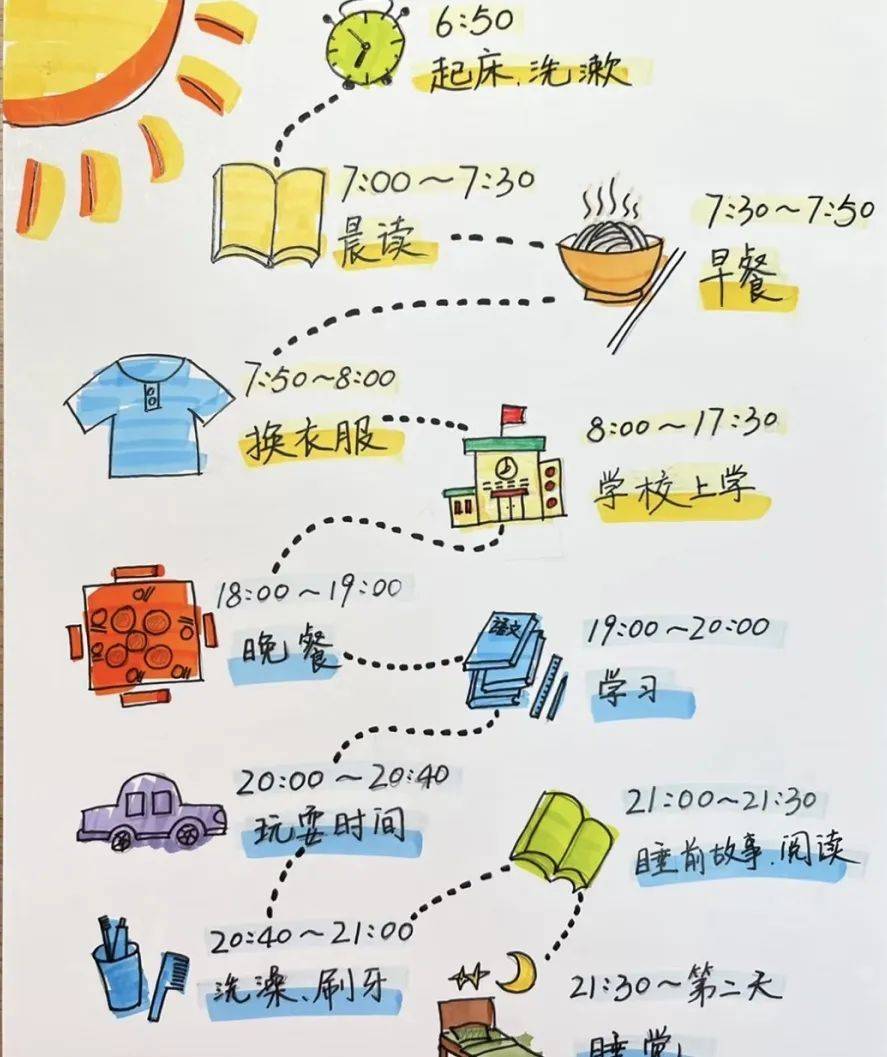 6:50
起床、洗漱
7:00～7:30
晨读
7:30～7:50
早餐
7:50～8:00
换衣服
8:00～17:30
学校上学
18:00～19:00
晚餐
语文
19:00～20:00
学习
20:00～20:40
玩耍时间
20:40～21:00
洗澡、刷牙
21:00～21:30
睡前故事、阅读
21:30～第二天
睡觉